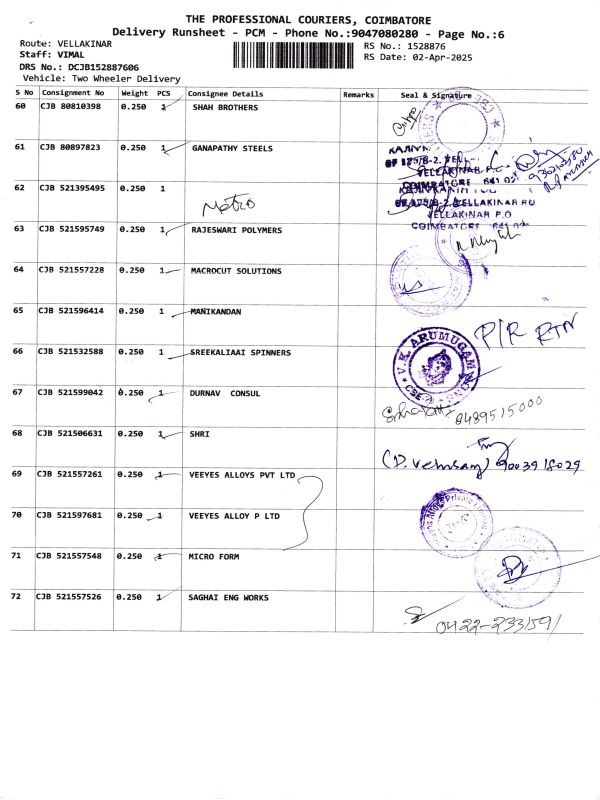 THE PROFESSIONAL COURIERS, COIMBATORE
Delivery Runsheet - PCM - Phone No.:9047080280 - Page No.:6
Route: VELLAKINAR
Staff: VIMAL
DRS No.: DCJB152887606
Vehicle: Two Wheeler Delivery
RS No.: 1528876
RS Date: 02-Apr-2025
S No Consignment No Weight PCS Consignee Details Remarks Seal & Signature
60 CJB 80810398 0.250 1 SHAH BROTHERS
61 CJB 80897823 0.250 1 GANAPATHY STEELS
VELLAKINAR P.O
COIMBATORE
62 CJB 521395495 0.250 1
Metro
VELLAKINAR P.O
COIMBATORE
63 CJB 521595749 0.250 1 RAJESWARI POLYMERS
64 CJB 521557228 0.250 1 MACROCUT SOLUTIONS
65 CJB 521596414 0.250 1 MANIKANDAN
P/R RTN
66 CJB 521532588 0.250 1 SREEKALIAAI SPINNERS
V.K. ARUMUGAM
67 CJB 521599042 0.250 1 DURNAV CONSUL
8489515000
68 CJB 521506631 0.250 1 SHRI
90039 18029
69 CJB 521557261 0.250 1 VEEYES ALLOYS PVT LTD
70 CJB 521597681 0.250 1 VEEYES ALLOY P LTD
71 CJB 521557548 0.250 1 MICRO FORM
72 CJB 521557526 0.250 1 SAGHAI ENG WORKS
0422-2331591